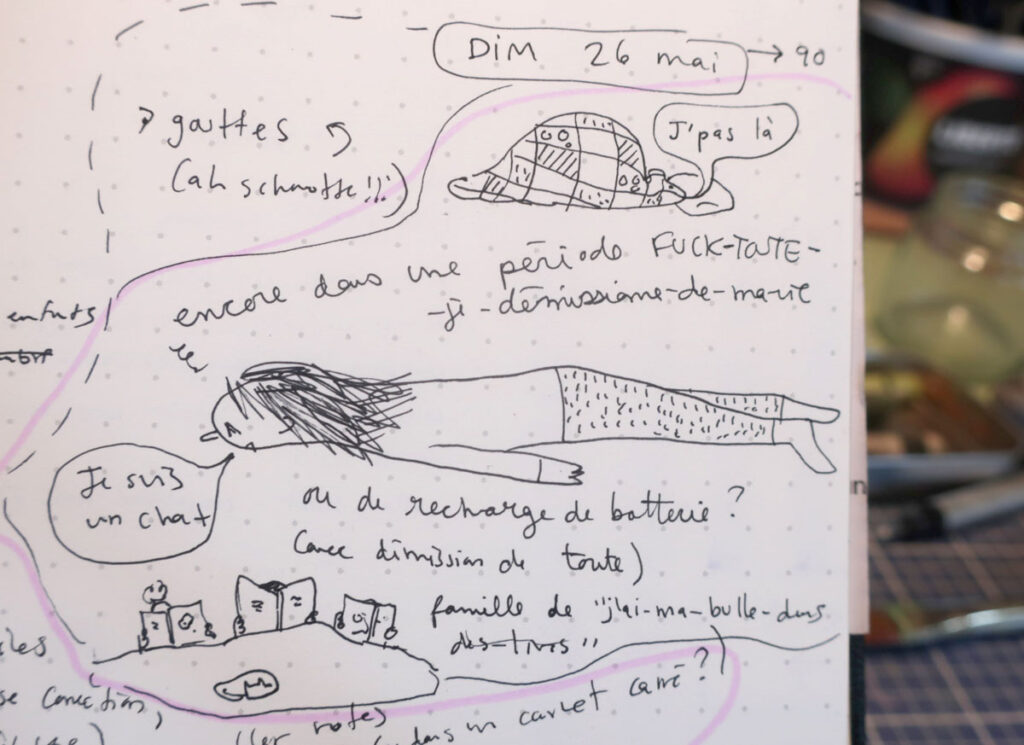 DIM 26 mai → 90
gouttes
(ah schnotte!!!)
J'pas là
encore dans une période FUCK-TOUTE-
-je-démissionne-de-ma-vie
enfants
Je suis
un chat
ou de recharge de batterie ?
(avec démission de toute)
famille de "j'lai-ma-bulle-dans
des-livres"
notes
dans un carnet carré ?)